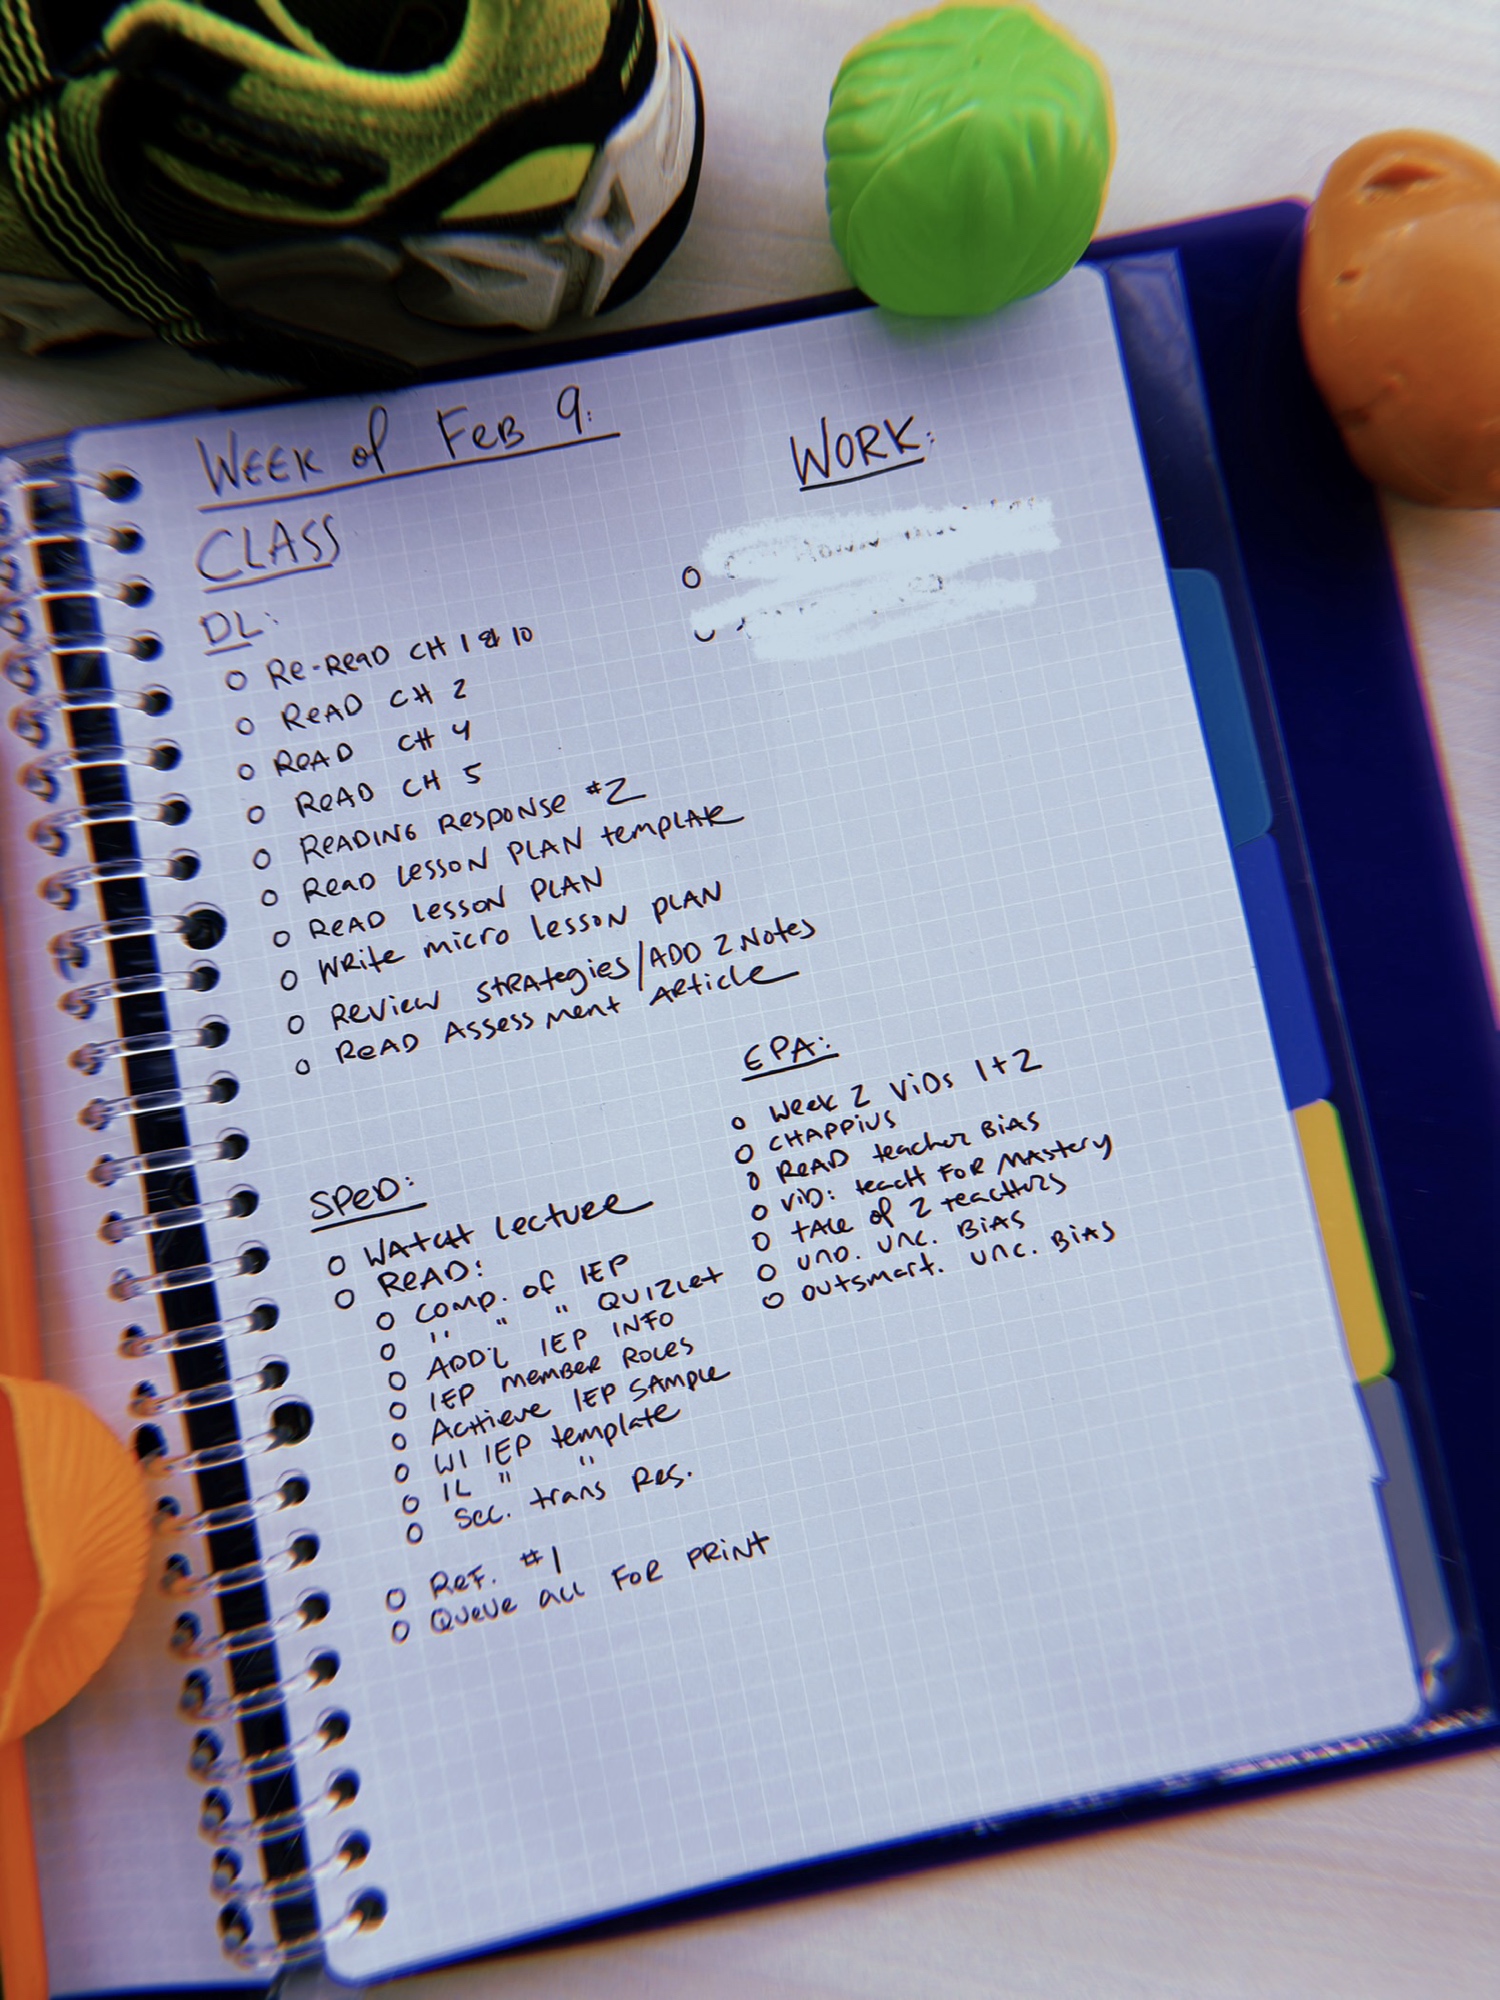 WEEK of FEB 9:
CLASS
DL:
Re-Read CH 1 & 10
READ CH 2
READ CH 4
READ CH 5
READING Response #2
Read Lesson PLAN template
READ Lesson PLAN
Write micro lesson plan
Review strategies/ADD 2 Notes
READ Assessment Article
WORK:
SPED:
WATCH Lecture
READ:
Comp. of IEP
" " " QUIZlet
ADD'L IEP INFO
IEP member ROLES
Achieve IEP SAMPLE
WI IEP template
IL " "
Sec. trans Res.
REF. #1
Queue all FOR PRINT
EPA:
Week 2 ViDs 1+2
CHAPPIUS
READ teacher BIAS
ViD: teach FOR MAstery
tAle of 2 teachers
UND. UNC. BIAS
outsmart. UNC. BIAS